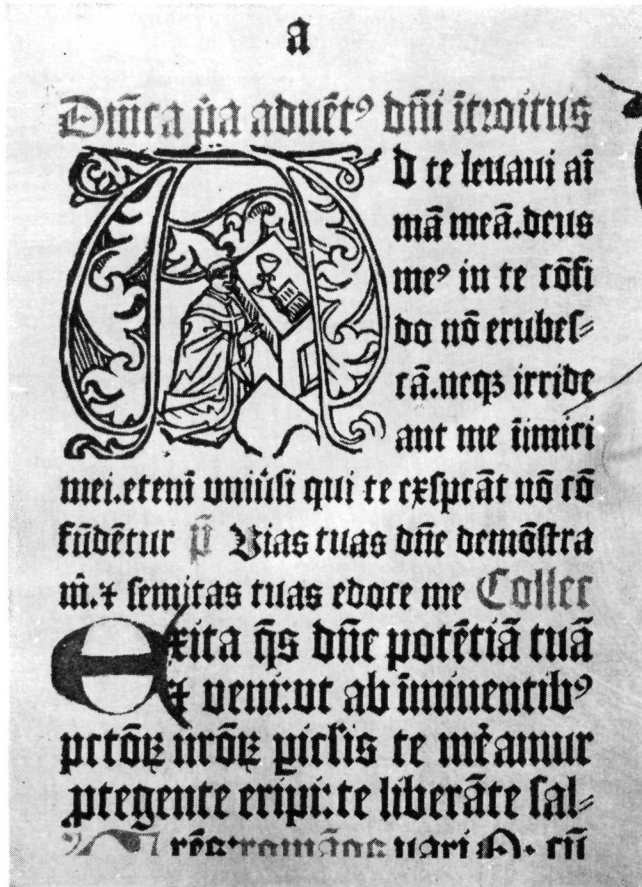 a
Dm̄ca p̄a aduēt⁹ dn̄i ītroitus
AD te leuaui aī
mā meā.deus
me⁹ in te cōfi
do nō erubeſ⸗
cā.neqꝫ irride
ant me īimici
mei.etenī vniūſi qui te exſpcāt nō cō
fūdētur p̄ Vias tuas dn̄e demōſtra
m̄.⁊ ſemitas tuas edoce me Collec
Exita q̄s dn̄e potētiā tuā
⁊ veni:vt ab īminentib⁹
pctōꝝ nrōꝝ ꝑiclis te mēamur
ꝓtegente eripi:te liberāte ſal⸗
romāos